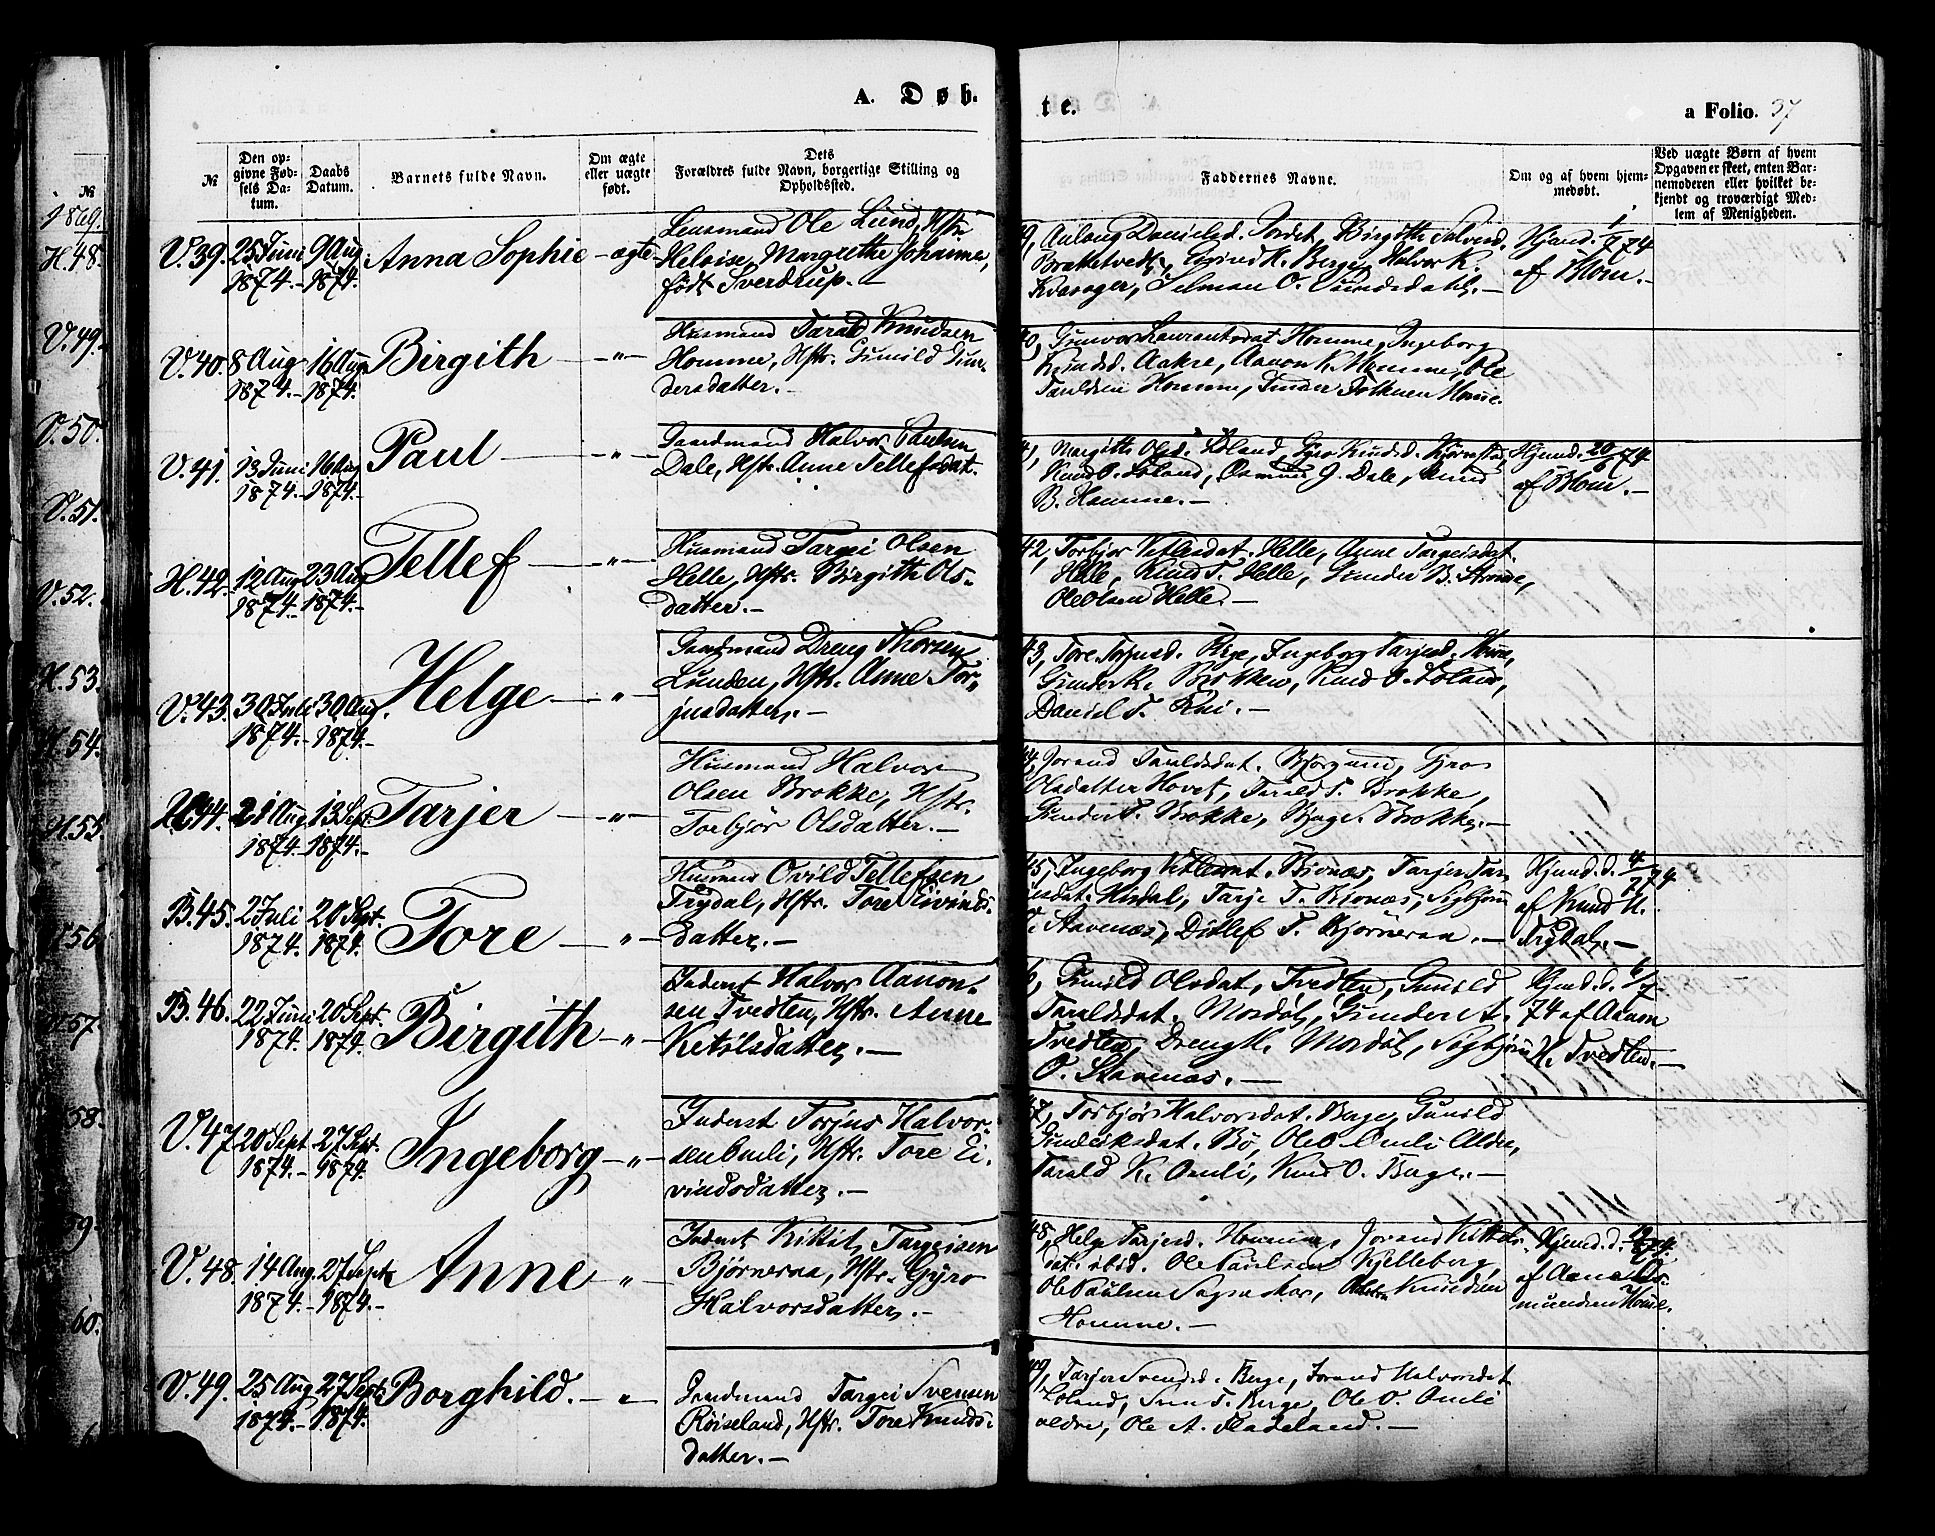 A. Døb-
te.
a Folio. 37
№
Den op-
givne Fød-
sels Da-
tum.
Daabs
Datum.
Barnets fulde Navn.
Om ægte
eller uægte
født.
Dets
Forældres fulde Navn, borgerlige Stilling og
Opholdssted.
Faddernes Navne.
Om og af hvem hjem-
medøbt.
Ved uægte Børn af hvem
Opgaven er skeet, enten Bar-
nemoderen eller hvilket be-
kjendt og troværdigt Med-
lem af Menigheden.
№
H. 48.
V. 49.
V. 50.
V. 51.
V. 52.
H. 53.
H. 54.
H. 55.
56.
57.
58.
59.
60.
V. 39. 25 Juni 1874.- 9 Aug 1874. Anna Sophie - ægte-
Lensmand Ole Lund, Hstr.
Heloise Margrethe Johanne,
født Sverdrup.-
Aslaug Danielsd. Jordet, Birgith Salvesd.
Brottetvedt, Eivind K. Berge, Halvor K.
Kvasager, Selman O. -
Hjmd. 1/7 74
af Blom.-
V. 40. 8 Aug 1874.- 16 Aug 1874. Birgith - " -
Husmand Tarald Knudsen
Homme, Hstr. Gunild Gun-
dersdatter.-
40, Gunvor Lauvrantsdat Homme, Ingeborg
Knudsd. Aakre, Aanon K. Homme, Ole
Taraldsen Homme, Gunder
V. 41. 13 Juni 1874.- 16 Aug 1874.- Paul - " -
Gaardmand Halvor Paulsen
Dale, Hstr. Anne Tellefsdat.
41, Margith Olsd. Løland, Gyro Knudsd.
Knud O. Løland, Osmund G. Dale, Knud
B. Homme.-
Hjmd. 20/6 74
af Blom.-
H. 42. 12 Aug 1874.- 23 Aug 1874.- Tellef - " -
Husmand Targei Olsen
Helle, Hstr. Birgith Ols-
datter.-
42, Torbjør Vetlesdat. Helle, Anne Targeisdat.
Helle, Knud T. Helle, Gunder B.
Ole Olsen Helle.-
V. 43. 30 Juli 1874.- 30 Aug. 1874.- Helge - "
Gaardmand Dreng Thorsen
Lunden, Hstr. Anne Tor-
jusdatter.-
43, Tore Torjusd. Berge, Ingeborg Tarjeisd.
Gunder K. Brokken, Knud O. Løland,
Daniel T. Rui.-
H. 44. 21 Aug 1874.- 13 Sept. 1874.- Tarjer - " -
Husmand Halvor
Olsen Brokke, Hstr.
Torbjør Olsdatter.-
44, Jorand Taraldsdat. Gyro
Olsdatter Hovet, Tarald T. Brokke,
Gunder T. Brokke, Brokke.-
B. 45. 2 Juli 1874.- 20 Sept. 1874. Tore - "
Husmd Ovild Tellefsen
Trydal, Hstr. Tore Eivinds-
datter.-
45, Ingeborg Bjonæs, Tarjer Tar-
Tarje T. Bjonæs, Sigbjørn
O. Stavenæs, Ditlef T. Bjørneraa.-
Hjmd. d. 4/7 74
af Knud H.
Trydal.-
B. 46. 22 Juni 1874. 20 Sept. 1874. Birgith - "
Inderst Halvor Aanon-
sen Tvedten, Hstr. Anne
Ketilsdatter.-
46, Gunild Olsdat. Tvedten, Gunild
Taraldsdat. Mordøl, Gunder A.
Tvedten, Dreng K. Mordøl, Sigbjørn
O. Stavenæs.-
Hjmd. d. 6/7
74 af Aanon
K. Tvedten.-
V. 47 20 Sept 1874.- 27 Sept. 1874. Ingeborg - "
Inderst Torjus Halvor-
sen Omli, Hstr. Tore Ei-
vindsdatter.-
47, Torbjør Halvorsdat. Berge, Gunild
Bø, Ole O. Omli
Tarald K. Omli, Knud O. Berge.-
V. 48. 14 Aug. 1874.- 27 Sept. 1874.- Anne - "
Inderst Kittil Targeisen
Bjørneraa, Hstr. Gyro
Halvorsdatter.-
48, Helge Tarjeisd. Homme, Jorand Kittils-
dat. ibid. Ole Paulsen Kjelleberg,
Ole Paulsen Knudsen
Homme.-
Hjmd. d.
af Aanon Os-
mundsen Home.
V. 49. 25 Aug 1874.- 27 Sept 1874.- Borghild. - "
Gaardmand Targei Svensen
Røiseland, Hstr. Tore Knuds-
datter.-
49, Tarjer Svendsd. Berge, Jorand Halvorsdat
Løland, Sven T. Berge, Ole O. Omli
ældre, Ole A. Fladeland.-